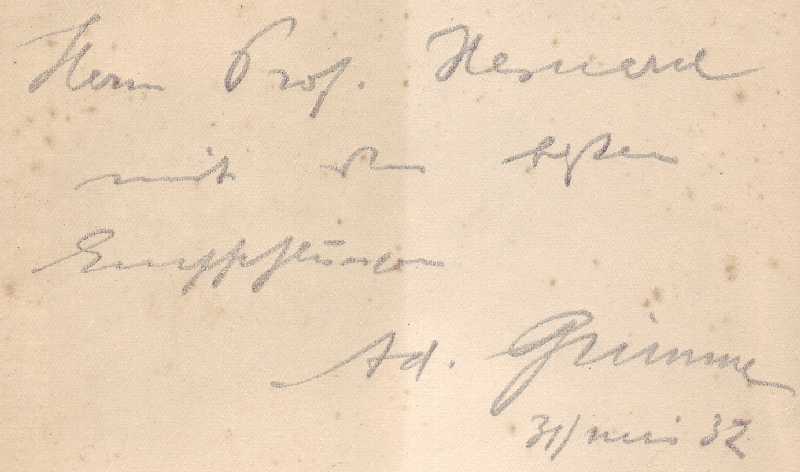 Herrn Prof. Hesnard
mit den besten
Empfehlungen
Ad. Grimme
31/ Mai 32